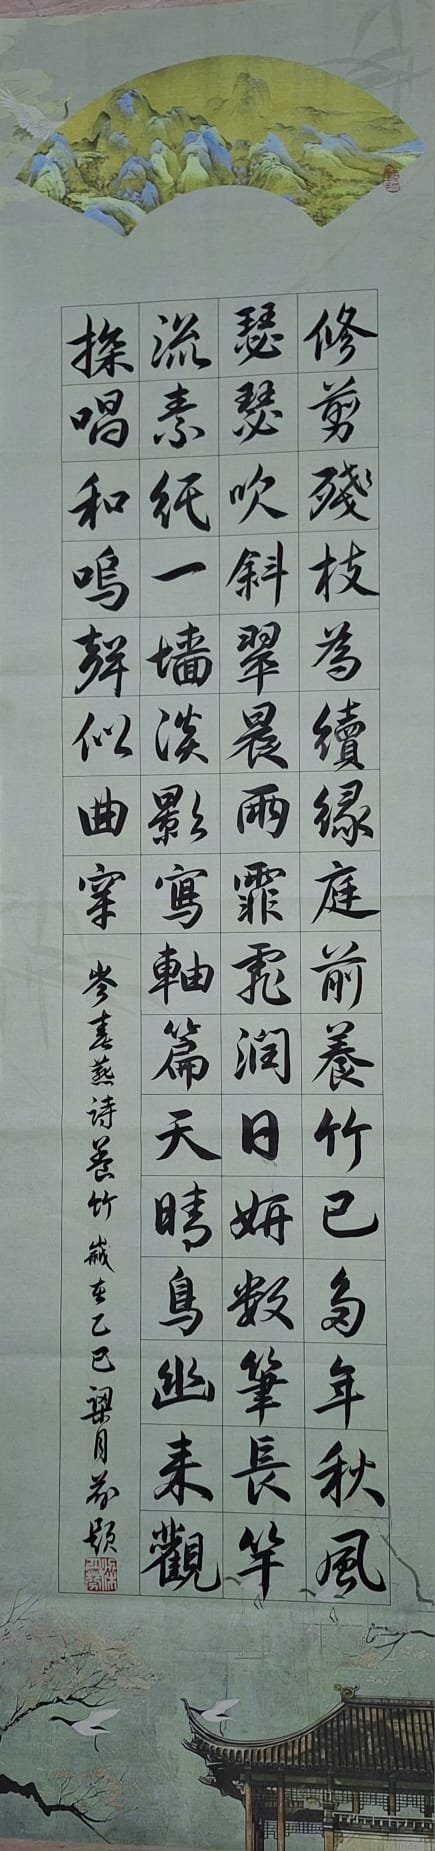 修剪殘枝為續緣庭前養竹已多年秋風
瑟瑟吹斜翠晨雨霏霏潤日妍數筆長竿
流素紙一墻淡影寫軸篇天晴鳥幽來觀
探唱和鳴聲似曲穿
岑春燕詩養竹 歲在乙巳 梁月芬題